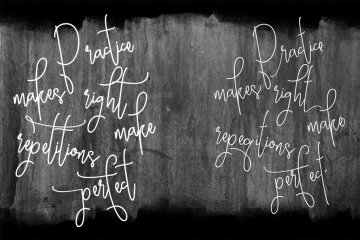 Practice
makes right
repetitions make
perfect
Practice
makes right
repetitions make
perfect.